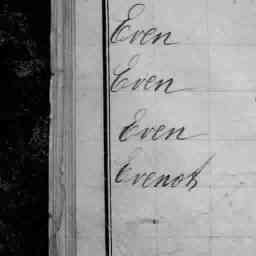 Even
Even
Even
Evenoh